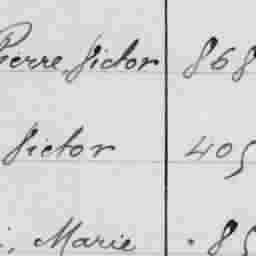 Pierre Victor 868
Victor 405
Marie . 85